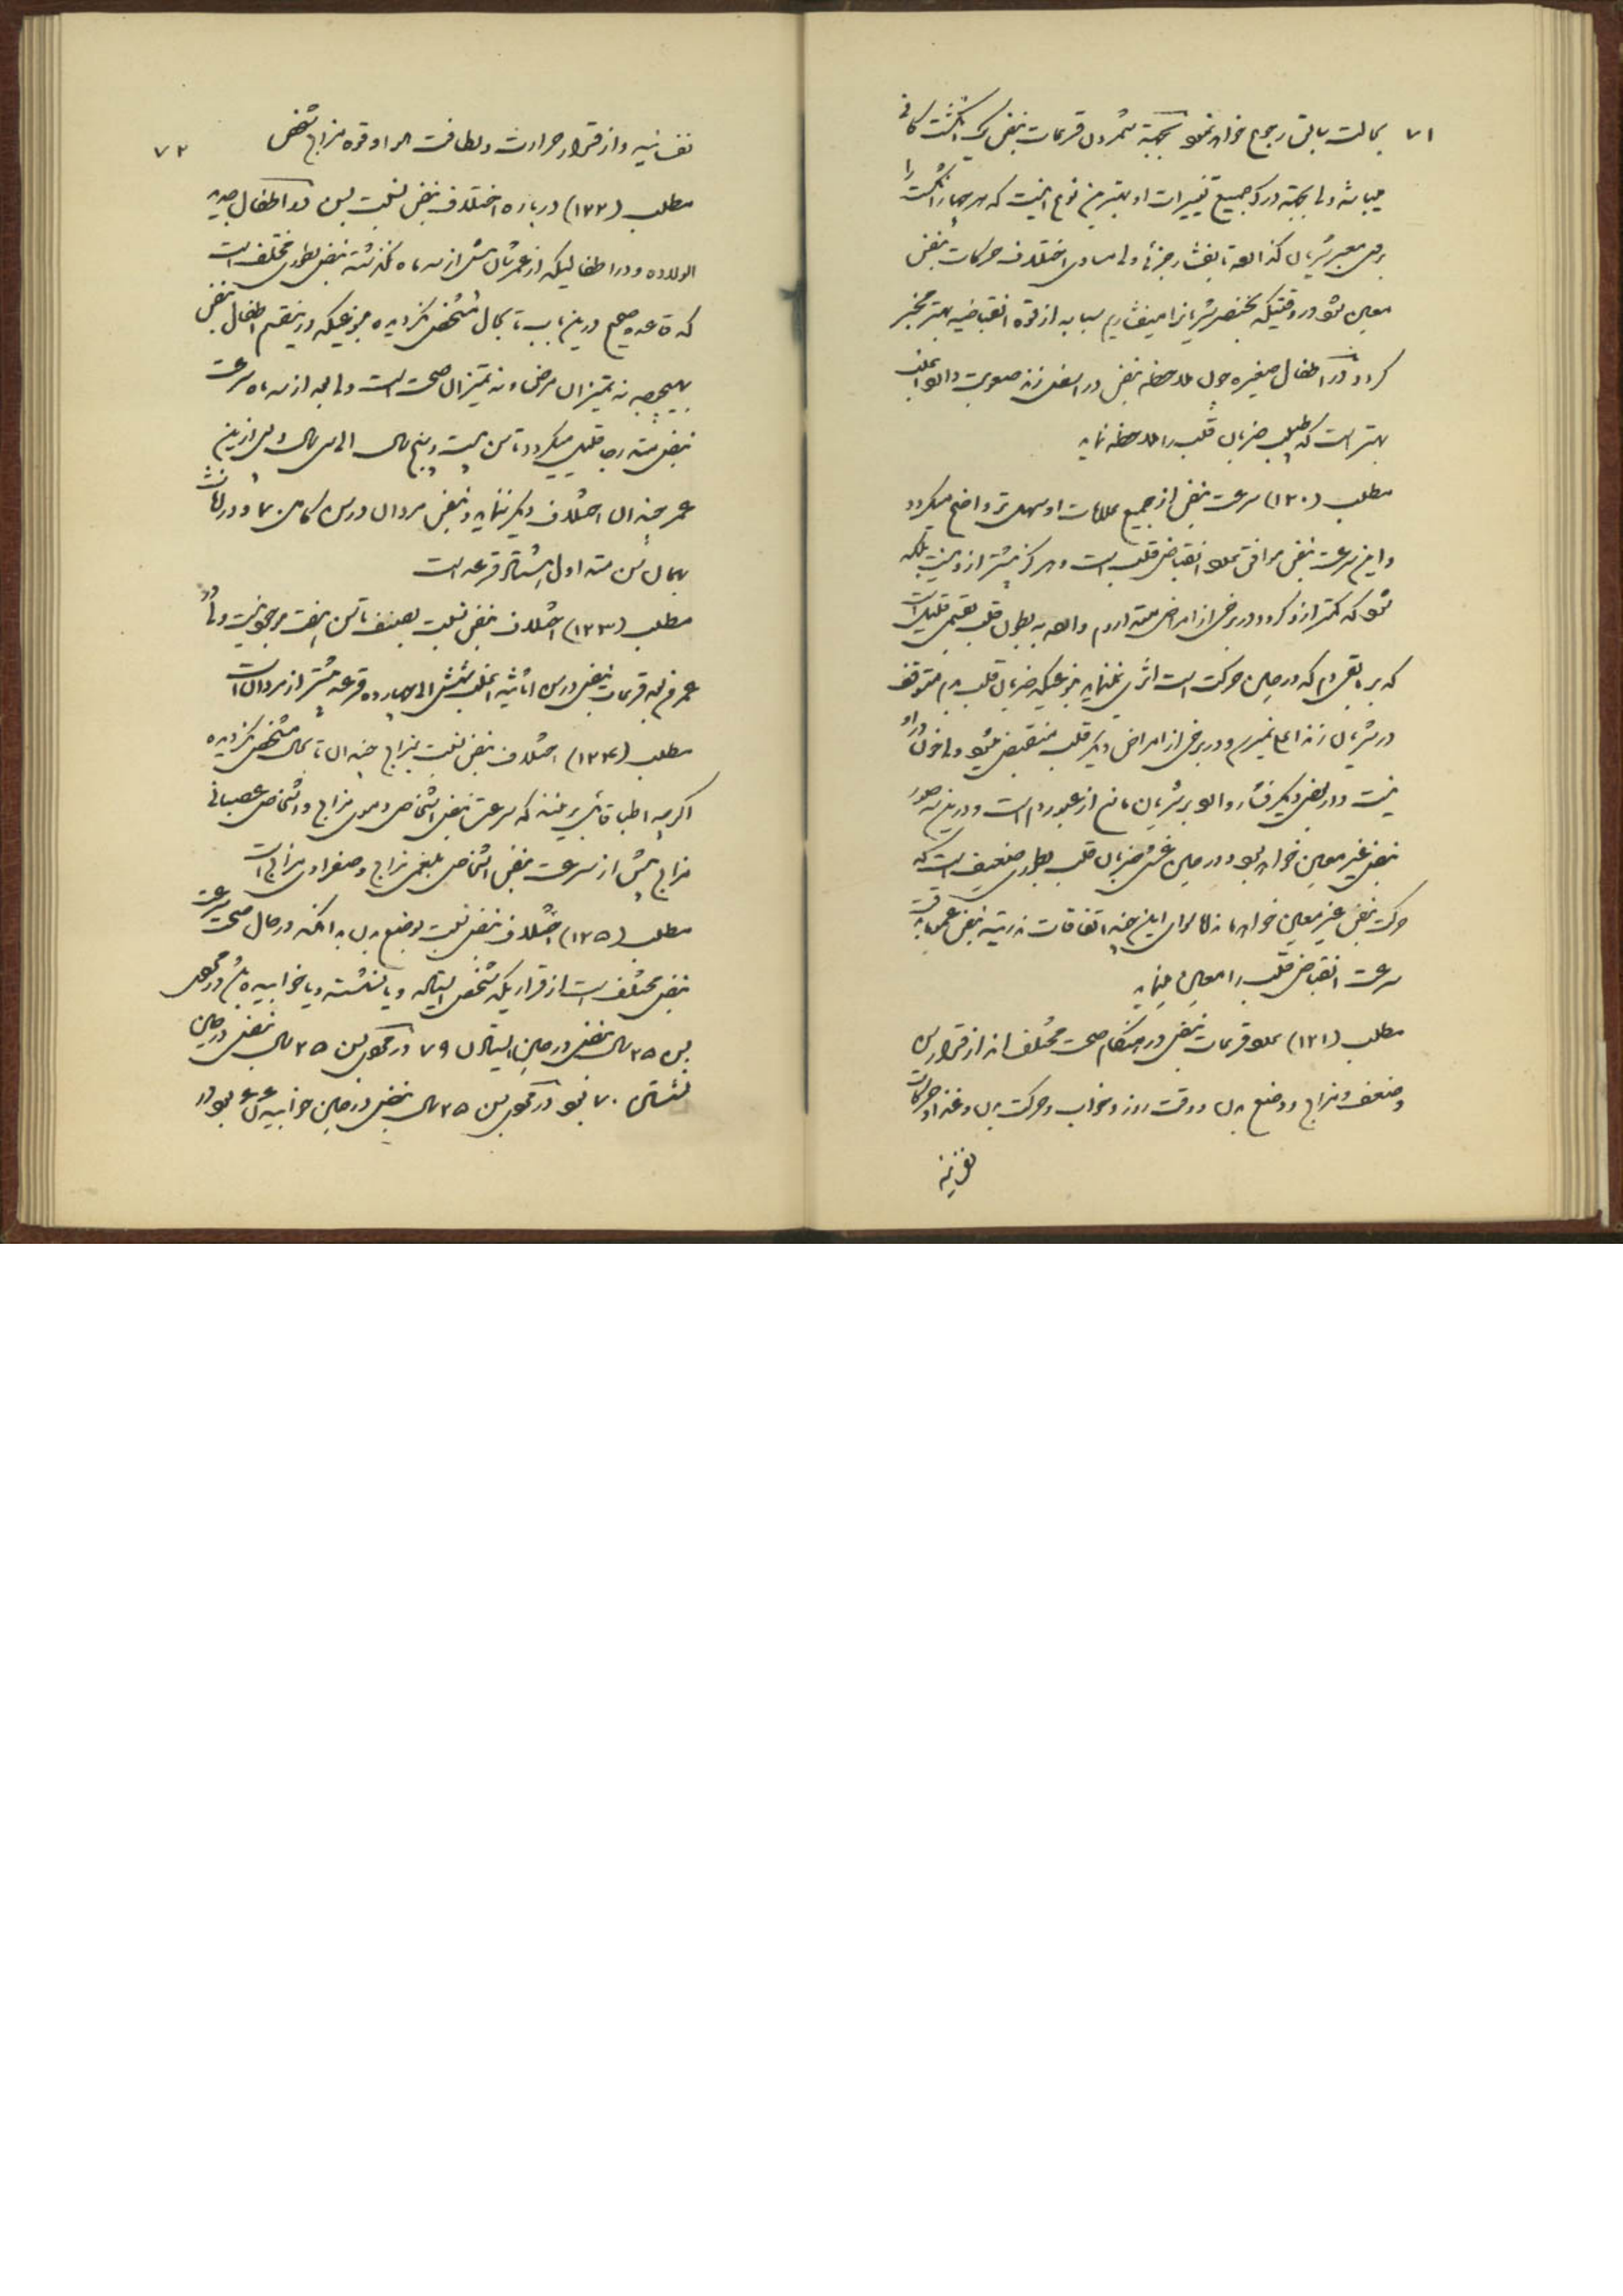 ۷۱
بحالت سابق رجوع خواهد نمود بجهة شمردن قرعات نبض یک انگشت کافی
میباشد ولی بجهة درک جمیع تغییرات او بهترین نوع اینست که هر چهار انگشت را
بر معبر شریان گذارده با فشار جزئی ولی مساوی اختلاف حرکات نبض
معین شود در وقتیکه بخنصر شریانرا میفشاریم سبابه از قوه انقباضیه بهتر مخبر
گردد در اطفال صغیره چون ملاحظه نبض در اسفل زند صعوبت دارد اغلب
بهتر است که طبیب ضربان قلب را ملاحظه نماید
مطلب (۱۲۰) سرعت نبض از جمیع علامات او سهل‌تر واضح میگردد
و این سرعت نبض موافق عدد انقباض قلب است و هرگز بیشتر ازو نیست بلکه
شود که کمتر ازو گردد در برخی از امراض ممتد اردم داده به بطون قلب بقسمی قلیل است
که بر بقیه دم که در حین حرکت است اثری نمینماید بنوعیکه ضربان قلب بدم متوقف
در شریان زند اعلی نمیرسد و در برخی از امراض دیگر قلب منقبض میشود ولی خون در او
نیست و در بعضی دیگر فشار وارد بر شریان مانع از عبور دم است و درین سه صورت
نبض غیر معین خواهد بود و در حین غش ضربان قلب بطوری ضعیف است که
حرکت نبض غیر معین خواهد ماند اما سوای این چند اتفاقات نادریه نبض عموما بدقت
سرعت انقباض قلب را معین مینماید
مطلب (۱۲۱) عدد قرعات نبض در هنگام صحت مختلف اند از قرار سن
و ضعف و مزاج و وضع بدن و وقت روز و خواب و حرکت بدن و غذا و حرکات
نفسانیه
۷۲
نفسانیه و از قرار حرارت و لطافت هوا و قوه مزاج شخص
مطلب (۱۲۲) درباره اختلاف نبض نسبت بسن در اطفال جدید
الولاده و در اطفالیکه از عمرشان بیش از سه ماه نگذشته نبض بطوری مختلف است
که قاعده صحیح درین باب تا بحال مشخص نگردیده بنوعیکه در ینقسم اطفال نبض
بهیچوجه نه تمیز ان مرض و نه تمیز ان صحت است ولی بعد از سه ماه سرعت
نبض متدرجا قلیل میگردد تا سن بیست و پنج سال الی سی سال و پس ازین
عمر چندان اختلاف دیگر ننماید و نبض مردان درسن کامل ۷۰ و در اناث
بهمان سن هشتاد قرعه است
مطلب (۱۲۳) اختلاف نبض نسبت بصنف تا سن هفت مرجوع نیست ولی در
عمر فوق قرعات نبض در سن اناثیه اغلب شش الی چهارده قرعه بیشتر از مردان است
مطلب (۱۲۴) اختلاف نبض نسبت بمزاج چندان تا بحال مشخص نگردیده
اگرچه اطبا قائل بر اینند که سرعت نبض اشخاص دموی مزاج و اشخاص عصبانی
مزاج بیش از سرعت نبض اشخاص بلغمی مزاج و صفراوی مزاج است
مطلب (۱۲۵) اختلاف نبض نسبت بوضع بدن بدانکه در حال صحت سرعت
نبض مختلف است از قراریکه شخص ایستاده و یا نشسته و یا خوابیده باشد در مجموع
بسن ۲۵ سال نبض در حین ایستادن ۷۹ در مجموع بسن ۲۵ سال نبض در حین
نشستن ۷۰ شود در مجموع بسن ۲۵ سال نبض در حین خوابیدن ۶۶ بود و در